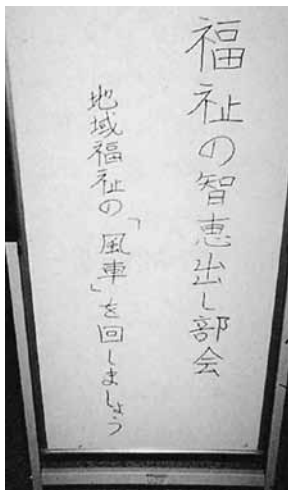 福祉の智恵出し部会
地域福祉の「風車」を回しましょう